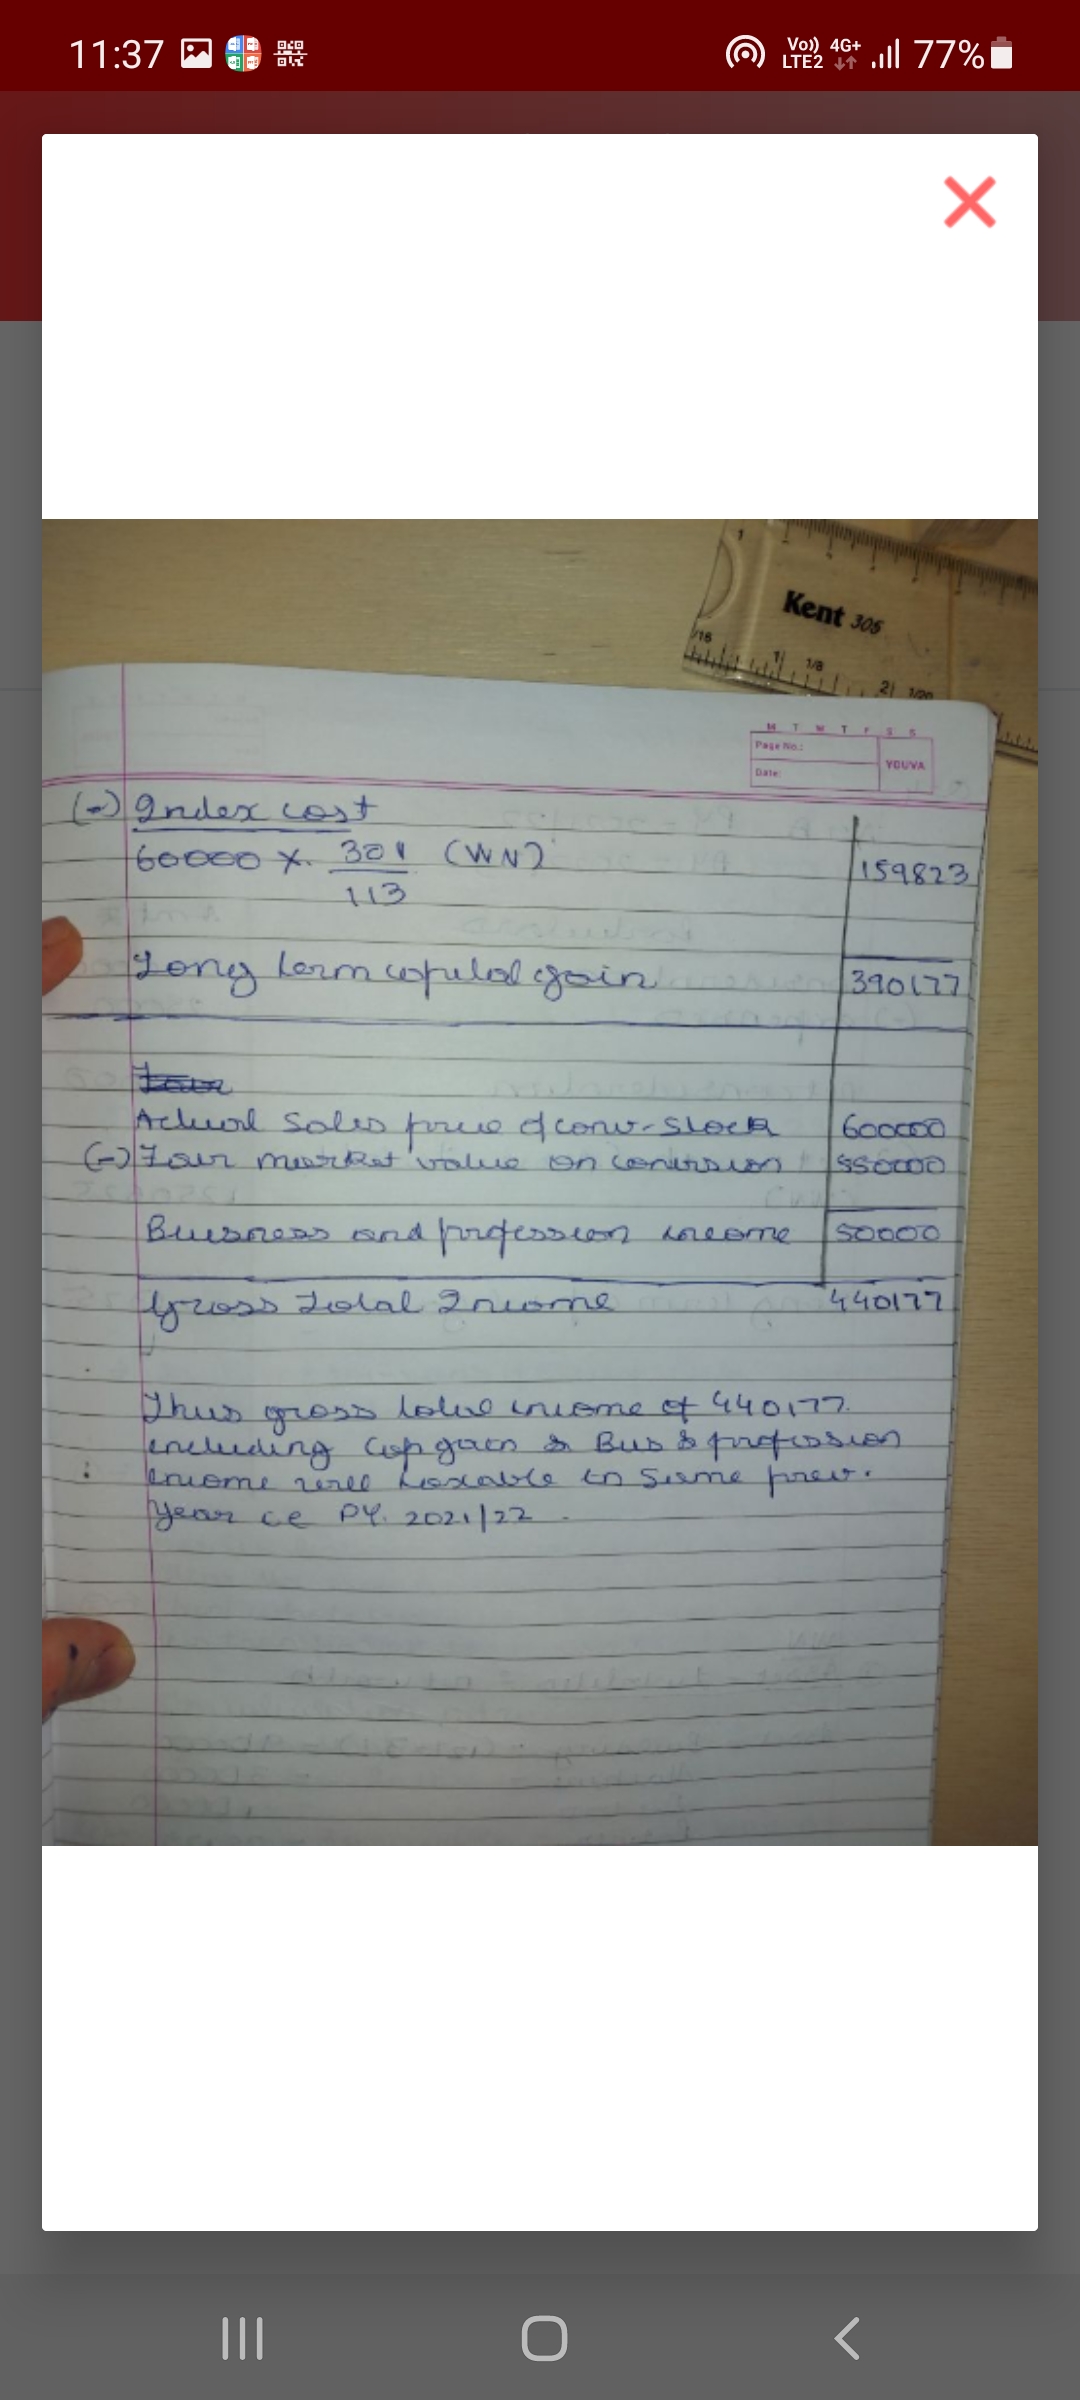 11:37
Vo)) 4G+ LTE2 77%
Kent 305
1
1/16 1 1/8 2 1/20
M T W T F S S
Page No.:
YOUVA
Date:
(-) Index cost
60000 X. 301 (WN) 159823
113
Long term capital gain 390177
Actual Sales price of conv. Stock 600000
(-) Fair market value on conversion 550000
Business and profession income 50000
Gross Total Income 440177
Thus gross total income of 440177.
including cap gain & Bus & profession
income will taxable in Same prev.
Year ie PY. 2021/22.